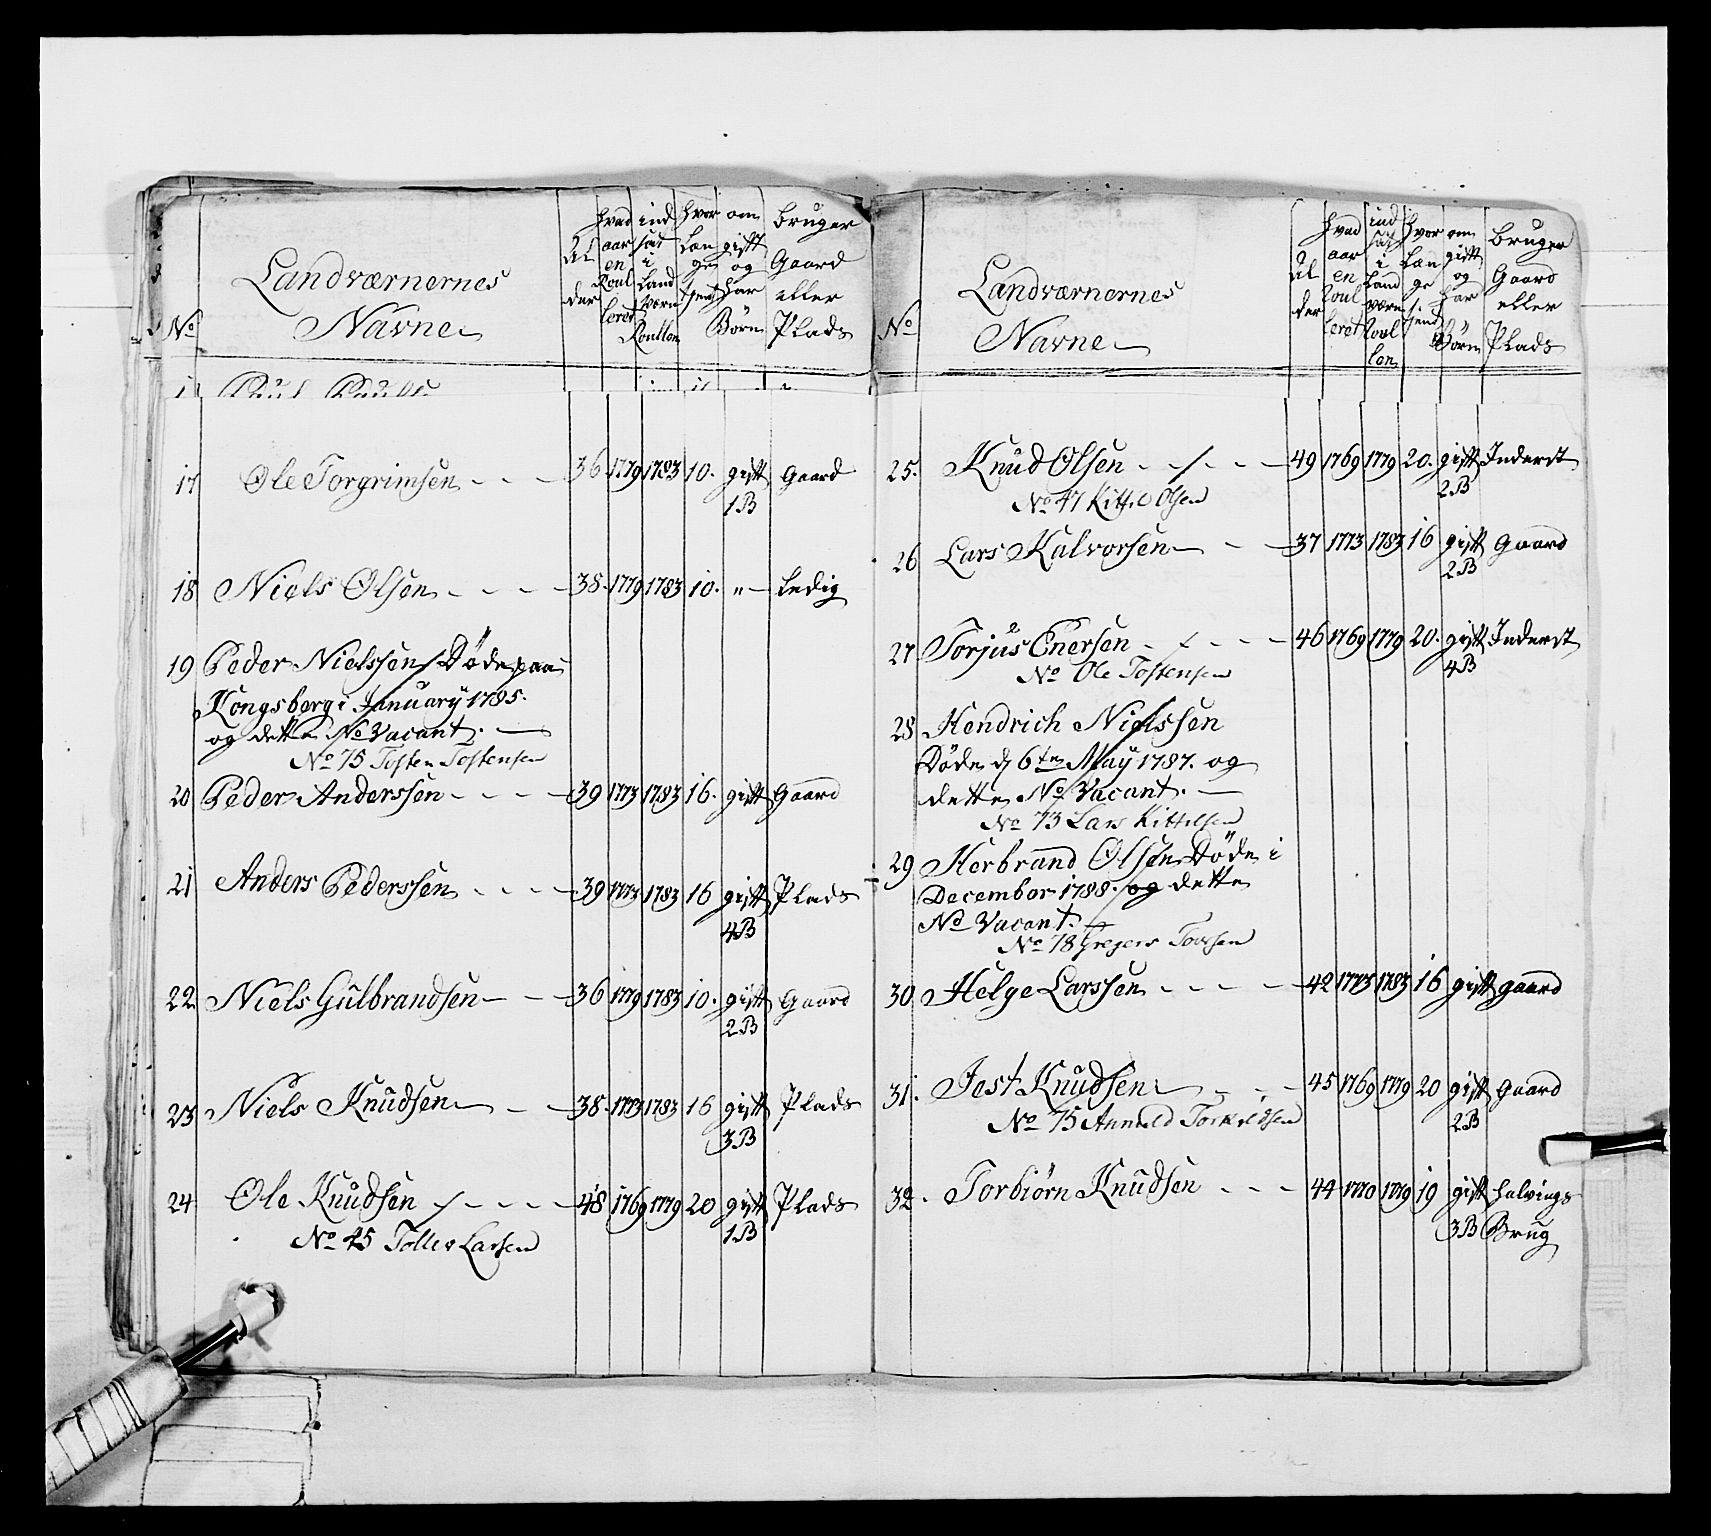 No
Landværnernes Navne
Alder
hvad aar enRoulleret
indsat i Landværn Roullen
hvor Længe tient
om gift og har Børn
bruger Gaard eller Plads
17 Ole Torgrimsen - - - 36 1779 1783 10. gift Gaard
1B
18 Niels Olsen - - - - 38. 1779 1783 10. " - Ledig
19 Peder Nielssen Døde paa
Kongsberg i January 1785.
og dette No Vacant. -
No 75 Tosten Tostensen
20 Peder Anderssen - - - - 39 1773 1783 16. gift Gaard
21 Anders Pederssen - - - - 39 1773 1783 16 gift Plads
4B
22 Niels Gulbrandsen - - - 36 1779 1783 10. gift Gaard
2B
23 Niels Knudsen - - 38. 1773 1783 16 gift Plads
3B
24 Ole Knudsen - - - - 48 1769 1779 20 gift Plads
1B
No 45 Tollev Larsen
No
Landværnernes Navne
Alder
hvad aar en Roulleret
indsat i Landværn Roullen
hvor Længe tient
om gift og har Børn
bruger Gaard eller Plads
25. Knud Olsen - - - - 49 1769 1779 20. gift Inderst
2B
No 47 Kittil Olsen
26 Lars Halvorsen - - 37 1773 1783 16 gift Gaard
2B
27 Torjus Enersen - - - - 46 1769 1779 20. gift Inderst
4B
No Ole Tostensen
28 Hendrich Nielssen
Døde d 6ten May 1787. og
dette No Vacant. -
No 73 Lars Kittelsen
29 Herbrand Olsen Døde i
December 1788. og dette
No Vacant. -
No 78 Gregers
30 Helge Larssen - - - - 42 1773 1783 16 gift gaard
31. Jest Knudsen - - - 45 1769 1779 20 gift Gaard
2B
No 75
32. Torbiørn Knudsen - - - 44 1770 1779 19 gift halvings
3B Brug